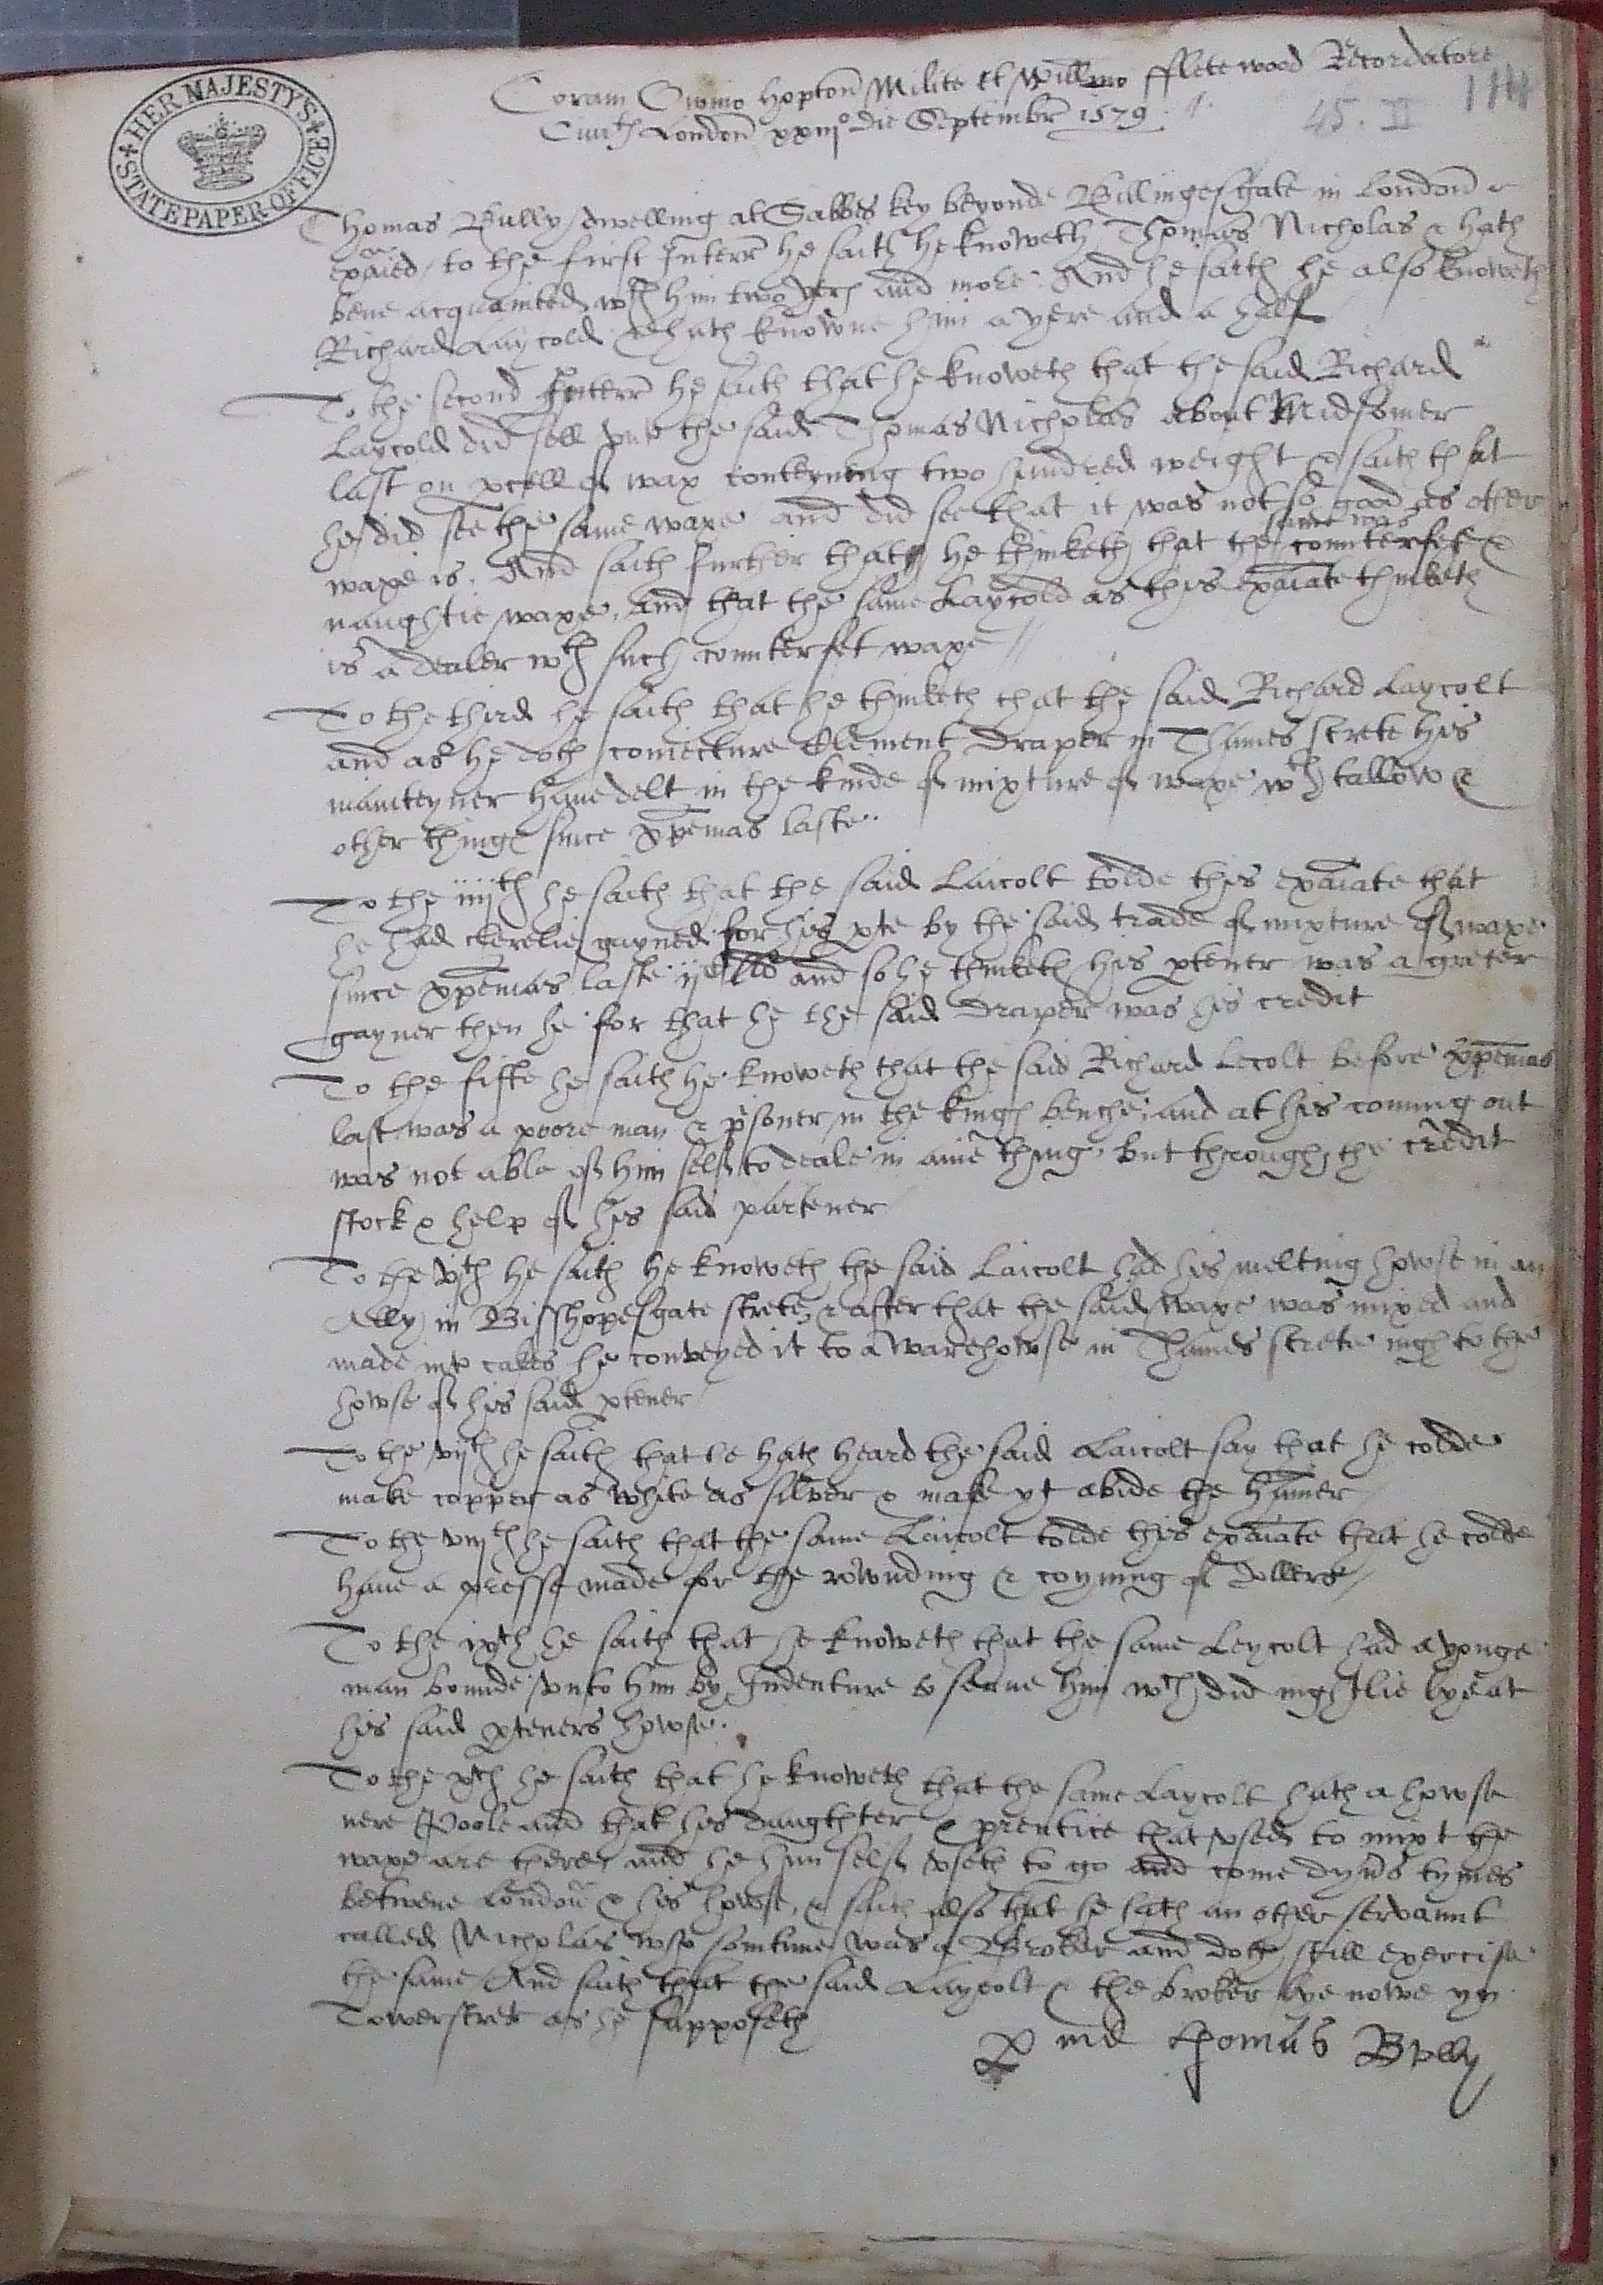 HER MAJESTY'S
STATE PAPER OFFICE
Coram Owino Hopton Milite et Willmo Fflete wood Recordatore
Civitt London xxiijo die Septembr 1579
45. II
Thomas Bully dwelling at Sabbes key beyonde Billingesgate in London &
exaied, to the first Interr he saith he knoweth Thomas Nicholas & hath
bene acquainted wth him two yers and more. And he saith he also knoweth
Richard Laycold & hath knowne him a yere and a half
To the second Interr he saith that he knoweth that the said Richard
Laycold did sell unto the said Thomas Nicholas about Midsomer
last on pcell of wax conteyneng two hundred weight & saith that
he did see the same waxe and did see that it was not so good as other
waxe is. And saith further that he thinketh that the same was counterfet &
naughtie waxe, and that the same Laycold as this exaiate thinketh
is a dealer wth such counterfet waxe
To the third he saith that he thinketh that the said Richard Laycolt
and as he doth coniecture Clement Draper in Thames strete his
mainteyner have delt in the kinde of mixture of waxe wth tallow &
other things since xpemas laste.
To the iiijth he saith that the said Laicolt tolde this exaiate that
he had clerelie gayned for his pte by the said trade of mixture of waxe
since xpemas laste ijc lld and so he thinketh his ptener was a greter
gayner then he for that he the said Draper was his credit
To the fifte he saith he knoweth that the said Richard Lecolt before xpemas
last was a poore man & psoner in the kings benche, and at his coming out
was not able of him self to deale in anie thing, but through the credit
stock & help of his said partener
To the vjth he saith he knoweth the said Laicolt had his melting howse in an
Ally in Bisshopesgate strete, & after that the said waxe was mixed and
made into cakes he conveyed it to a warehowse in Thames strete nigh to the
howse of his said ptener
To the vijth he saith that he hath heard the said Laicolt say that he colde
make copper as white as silver & make yt abide the hamer
To the viijth he saith that the same Laicolt tolde this exaiate that he colde
have a presse made for the rownding & coyning of Dollers
To the ixth he saith that he knoweth that the same Leycolt had a yonge
man bounde unto him by Indenture to serve him wch did nightlie lye at
his said pteners howse.
To the xth he saith that he knoweth that the same Laycolt hath a howse
nere Poole and that his daughter & prentice that used to mixt the
waxe are there, and he him self useth to go and come dyvs tymes
betwene London & his howse, & saith also that he hath an other servaunt
called Nicholas who somtime was a Broker and doth still exercise
the same And saith that the said Laycolt & the broker lye nowe yn
Towerstret as he supposeth
p me thomas Bvlly